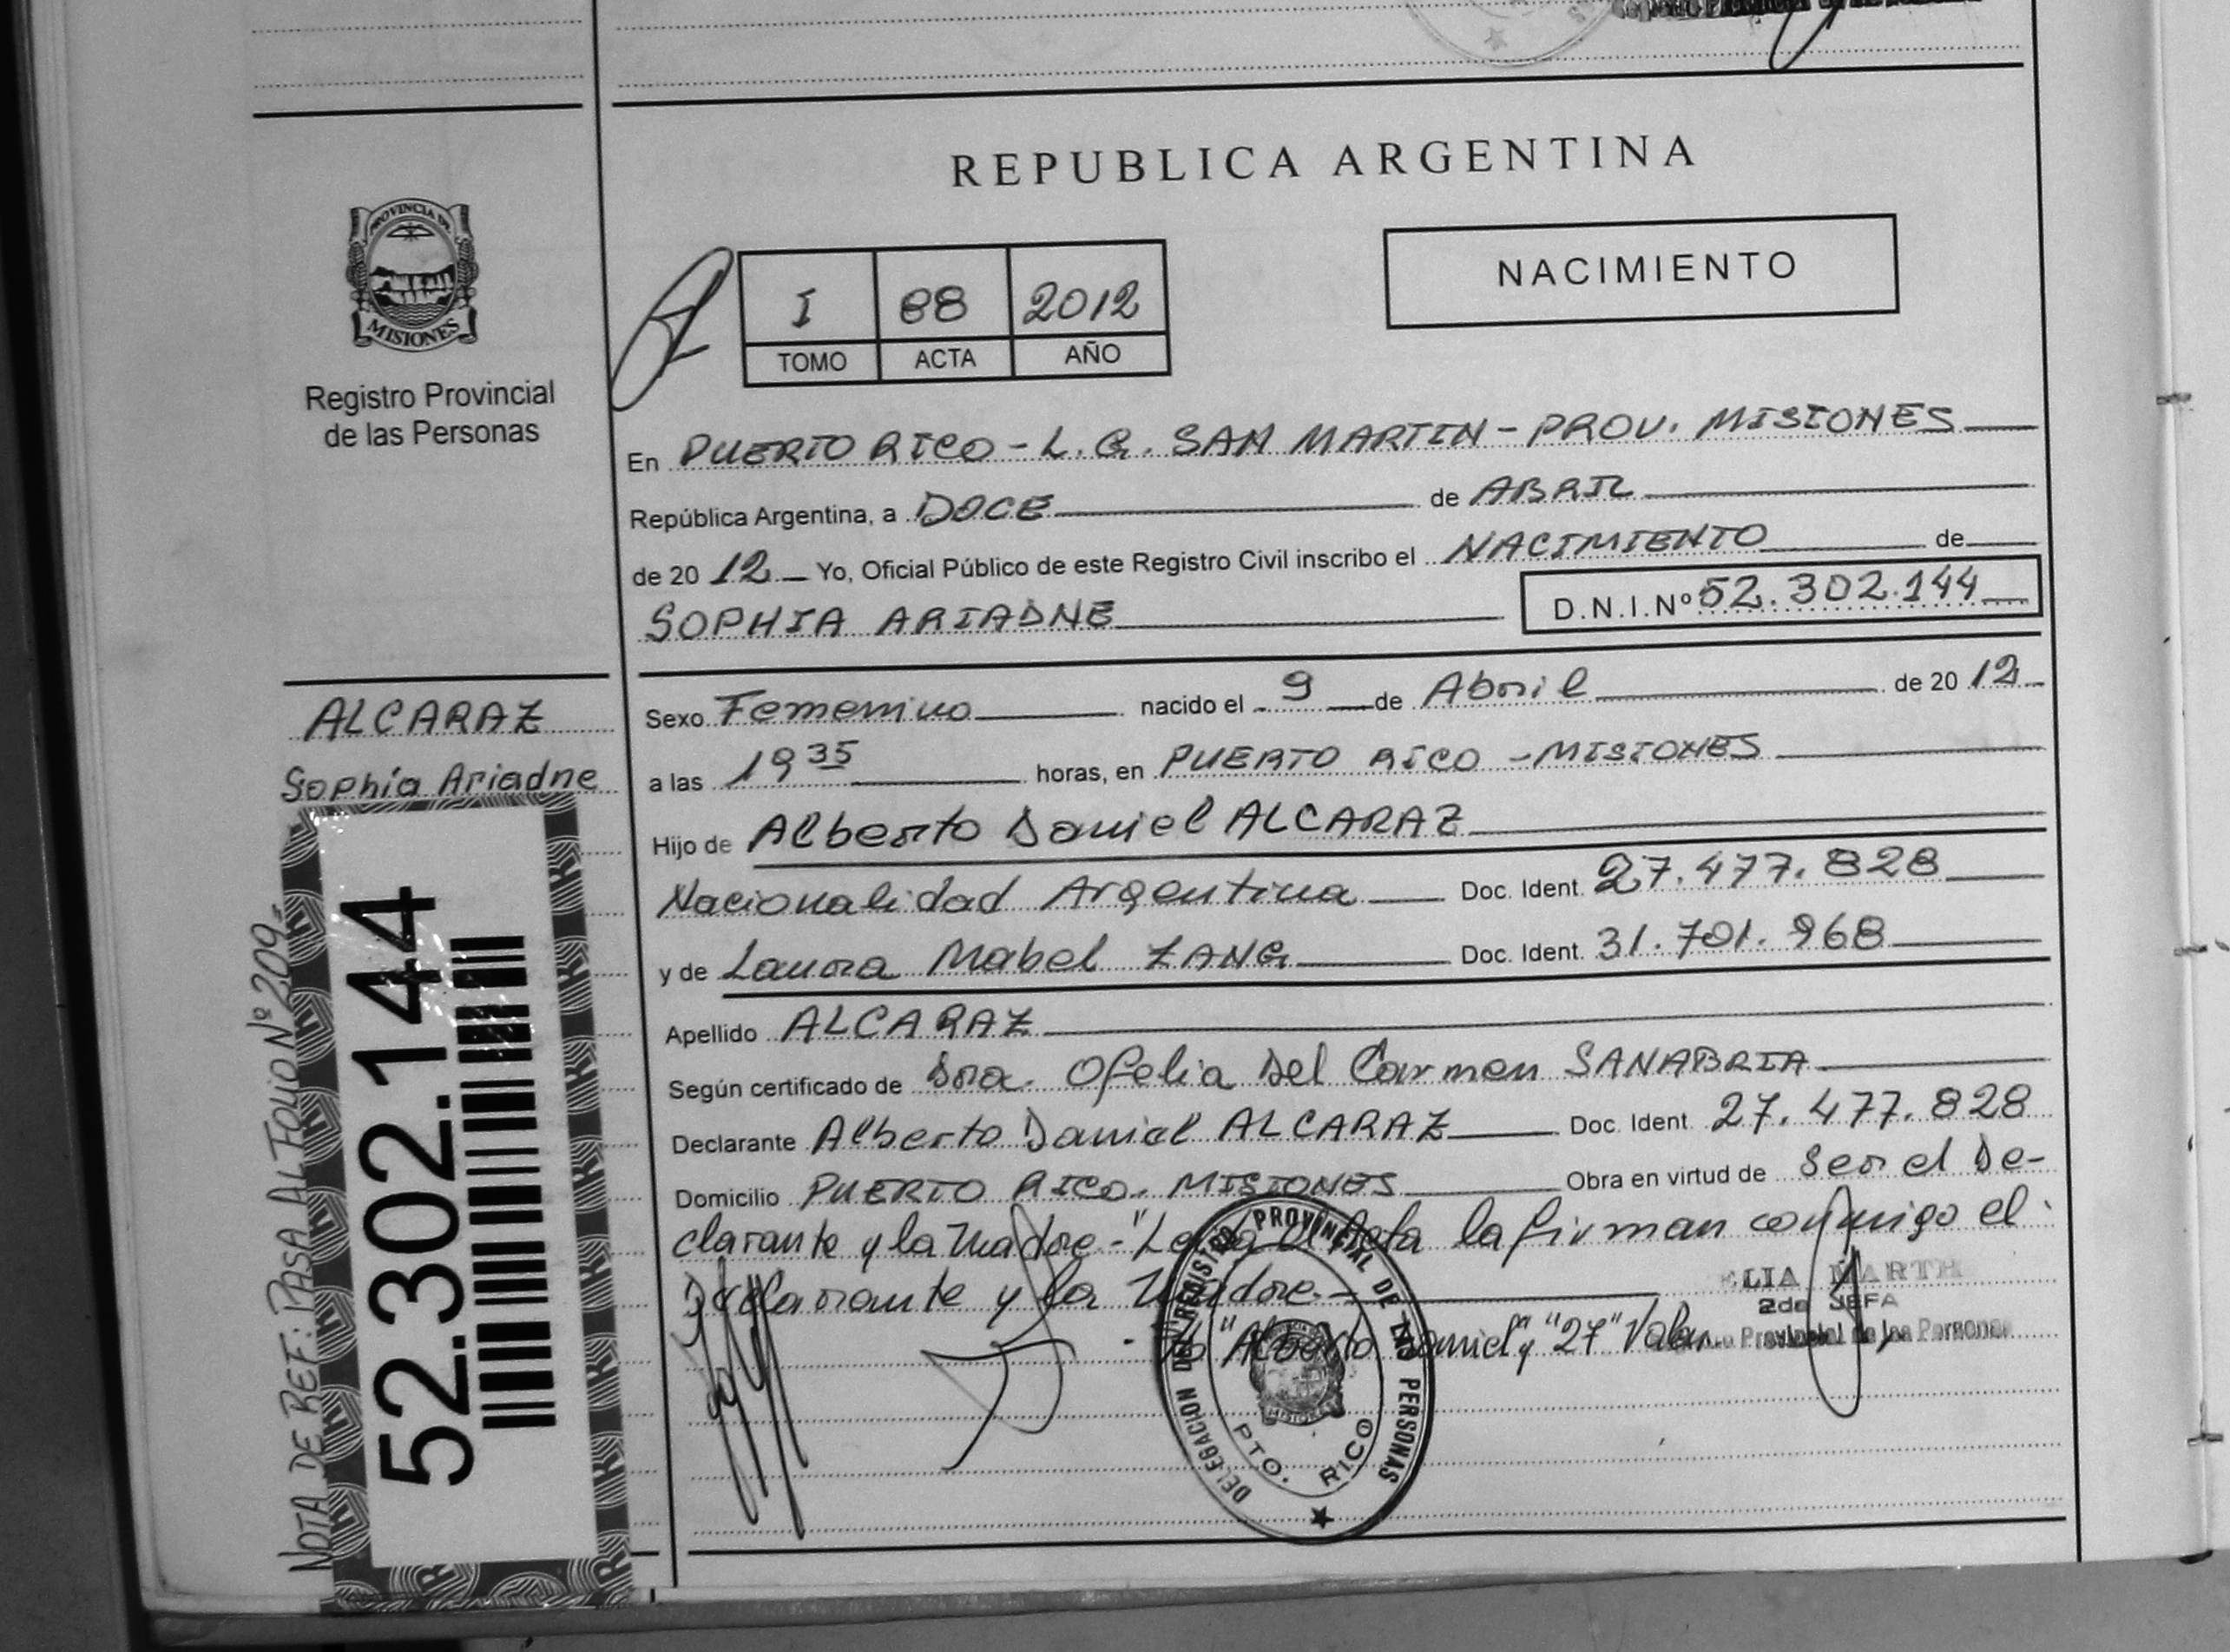 REPUBLICA ARGENTINA
PROVINCIA DE
MISIONES
Registro Provincial
de las Personas
NACIMIENTO
I 88 2012
TOMO ACTA AÑO
En PUERTO RICO - L. G. SAN MARTIN - PROV. MISIONES
República Argentina, a DOCE de ABRIL
de 20 12 Yo, Oficial Público de este Registro Civil inscribo el NACIMIENTO de
SOPHIA ARIADNE D.N.I.Nº 52.302.144
ALCARAZ
Sophia Ariadne
Sexo Femenino nacido el 9 de Abril de 20 12
a las 19 35 horas, en PUERTO RICO - MISIONES
Hijo de Alberto Daniel ALCARAZ
Nacionalidad Argentina Doc. Ident. 27.477.828
y de Laura Mabel ZANG Doc. Ident. 31.701.968
Apellido ALCARAZ
Según certificado de Dra. Ofelia Del Carmen SANABRIA
Declarante Alberto Daniel ALCARAZ Doc. Ident. 27.477.828
Domicilio PUERTO RICO. MISIONES Obra en virtud de Ser el De-
clarante y la Madre.- "Leída el Acta la firman conmigo el
Declarante y la Madre.-
"Alberto Daniel" y "27" Valen
ELIA MARTH
2da JEFA
Provincial de las Personas
DELEGACION DEL REGISTRO PROVINCIAL DE LAS PERSONAS
MISIONES
PTO. RICO
52.302.144
NOTA DE REF.: PASA AL FOLIO Nº 209.-